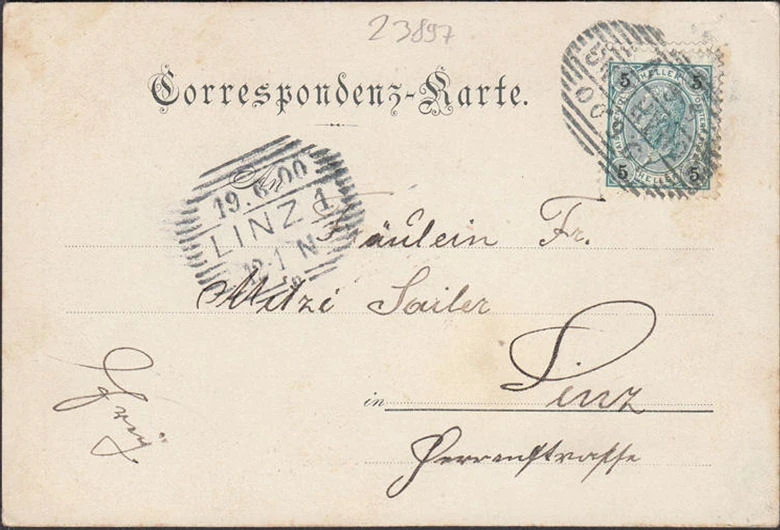 23897
Correspondenz-Karte.
5 HELLER 5
5 HELLER 5
An
19.6.00
LINZ 1
12-1 N
Fräulein Fr.
Mitzi Sailer
in Linz
Herrenstrasse